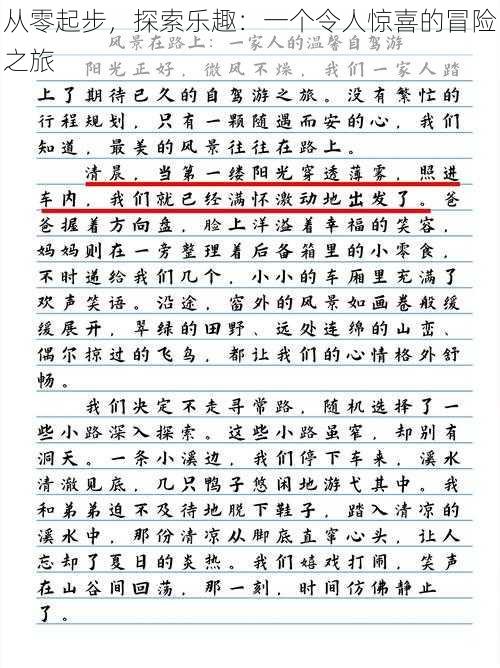 从零起步，探索乐趣：一个令人惊喜的冒险
之旅
风景在路上：一家人的温馨自驾游
阳光正好，微风不燥，我们一家人踏
上了期待已久的自驾游之旅。没有繁忙的
行程规划，只有一颗随遇而安的心，我们
知道，最美的风景往往在路上。
清晨，当第一缕阳光穿透薄雾，照进
车内，我们就已经满怀激动地出发了。爸
爸握着方向盘，脸上洋溢着幸福的笑容，
妈妈则在一旁整理着后备箱里的小零食，
不时递给我们几个，小小的车厢里充满了
欢声笑语。沿途，窗外的风景如画卷般缓
缓展开，翠绿的田野、远处连绵的山峦、
偶尔掠过的飞鸟，都让我们的心情格外舒
畅。
我们决定不走寻常路，随机选择了一
些小路深入探索。这些小路虽窄，却别有
洞天。一条小溪边，我们停下车来，溪水
清澈见底，几只鸭子悠闲地游弋其中。我
和弟弟迫不及待地脱下鞋子，踏入清凉的
溪水中，那份清凉从脚底直窜心头，让人
忘却了夏日的炎热。我们嬉戏打闹，笑声
在山谷间回荡，那一刻，时间仿佛静止
了。